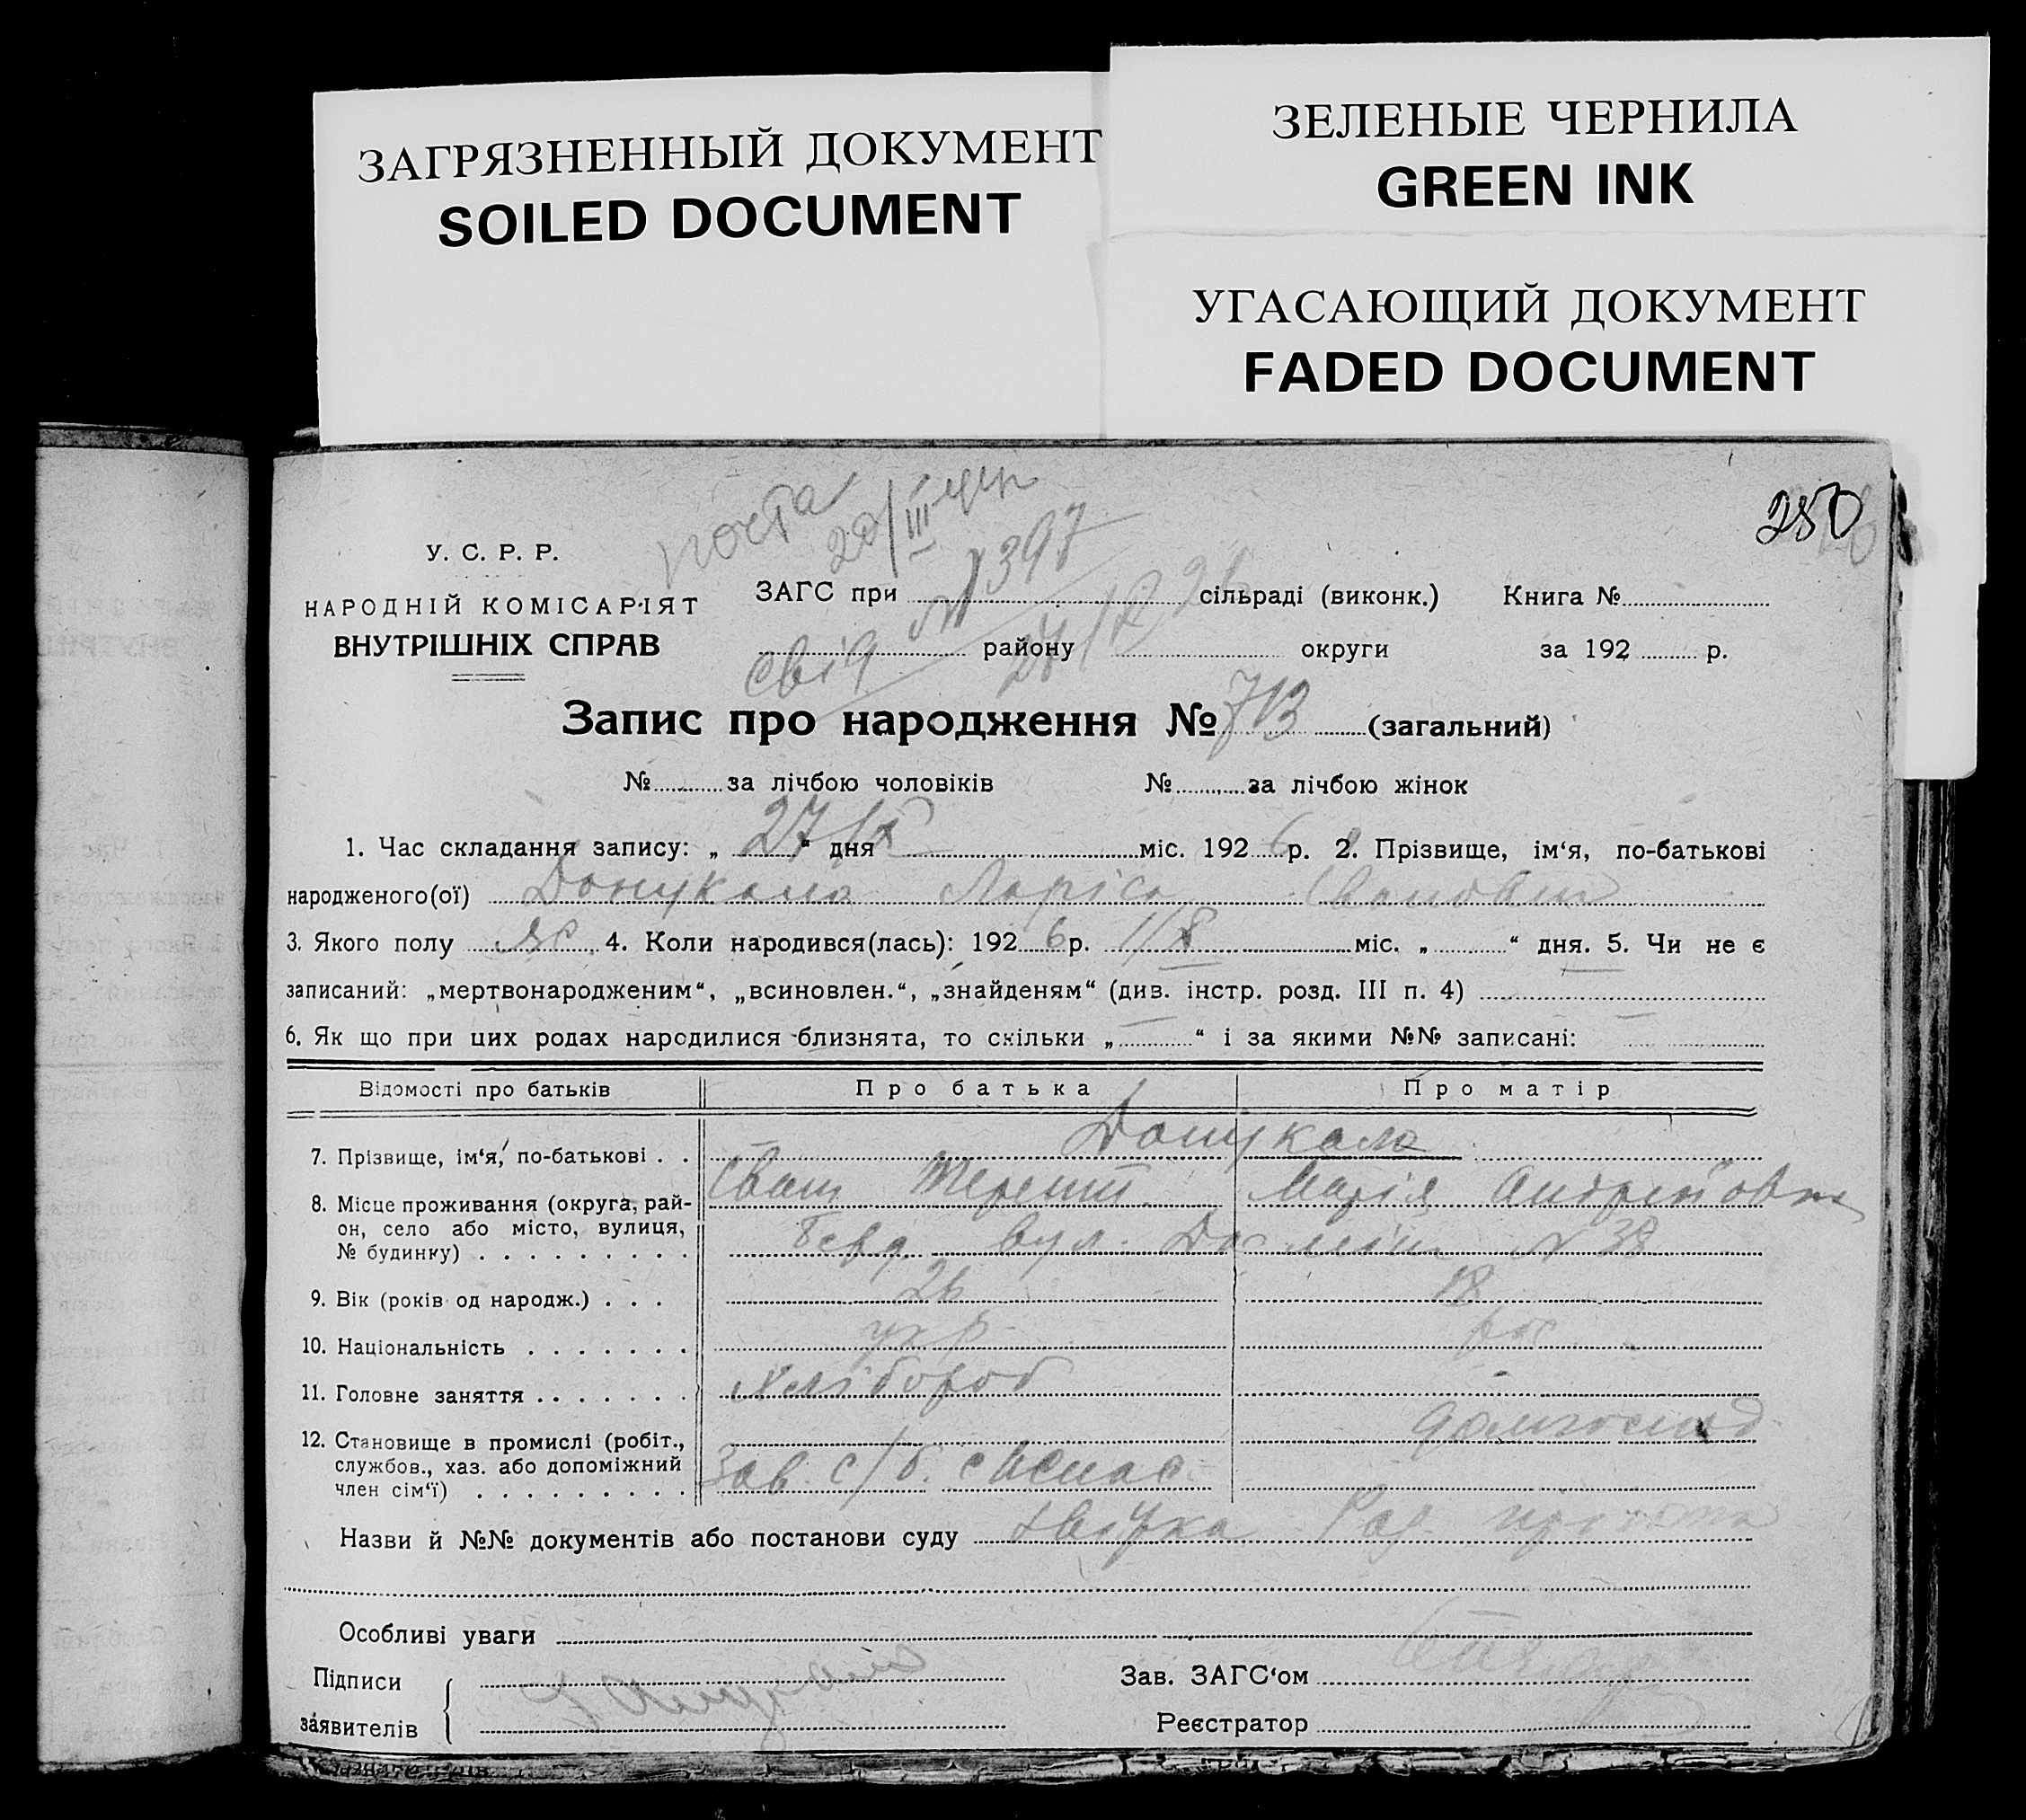 ЗАГРЯЗНЕННЫЙ ДОКУМЕНТ
SOILED DOCUMENT
ЗЕЛЕНЫЕ ЧЕРНИЛА
GREEN INK
УГАСАЮЩИЙ ДОКУМЕНТ
FADED DOCUMENT
280
20/III
У. С. Р. Р.
НАРОДНІЙ КОМІСАРІЯТ
ВНУТРІШНІХ СПРАВ
№ 397
ЗАГС при сільраді (виконк.) Книга №
району округи за 192 р.
Запис про народження № 713 (загальний)
№ за лічбою чоловіків № за лічбою жінок
1. Час складання запису: „ 27/X “ дня міс. 192 6 р. 2. Прізвище, ім‘я, по-батькові
народженого(ої) Донукало Ларіса Івановн
3. Якого полу 4. Коли народився(лась): 192 6 р. 1/X міс. „ “ дня. 5. Чи не є
записаний: „мертвонародженим“, „всиновлен.“, „знайденям“ (див. інстр. розд. III п. 4)
6. Як що при цих родах народилися близнята, то скільки „ “ і за якими №№ записані:
Відомості про батьків Про батька Про матір
Донукало
7. Прізвище, ім‘я, по-батькові . .
Іван Терент. Марія Андреіовн
8. Місце проживання (округа, рай-
он, село або місто, вулиця,
№ будинку) . . . . . . . . . вул. № 38
9. Вік (років од народж.) . . . 26 18
10. Національність . . . . . . . укр рос
11. Головне заняття . . . . . . . Хлібороб
12. Становище в промислі (робіт.,
службов., хаз. або допоміжний
член сім‘ї) . . . . . . . . . Зав. с/б.
Назви й №№ документів або постанови суду
Особливі уваги
Підписи
заявителів
Зав. ЗАГС‘ом
Реєстратор